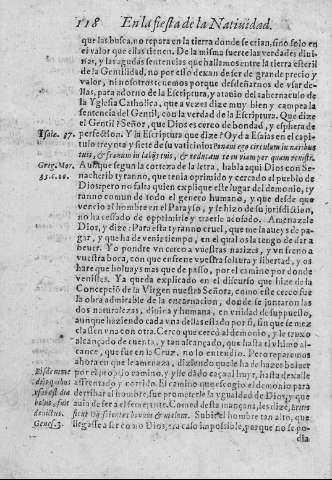 118 En la fiesta de la Natiuidad.
que las busca, no repara en la tierra donde se crian, sino solo en
el valor que ellas tienen. De la misma suerte las verdades diui-
nas, y las agudas sentencias que hallamos entre la tierra esteril
de la Gentilidad, no por esso dexan de ser de grande precio y
valor, ni nosotros tenemos porque desdeñarnos de vsar de-
llas, para adorno de la Escriptura, y atauio del tabernaculo de
la Yglesia Catholica, que a vezes dize muy bien y campea la
sentencia del Gentil, con la verdad de la Escriptura. Que dize
el Gentil? Señor, que Dios es cerco de bondad, y esphera de
Isaie. 37. perfection. Y la Escriptura que dize? Oyd a Esaias en el capi-
tulo treynta y siete de su vaticinio: Ponam ego circulum in naribus
tuis, & frænum in labijs tuis, & reducam te in viam per quam venisti.
Greg. Mor. Aunque segun la corteza de la letra, habla aqui Dios con Se-
nacherib tyranno, que tenia oprimido y cercado el pueblo de
Dios: pero no falta quien explique este lugar del demonio, ty
ranno comun de todo el genero humano, y que desde que
vencio al hombre en el Parayso, y se hizo de su jurisdiction,
no ha cessado de oppressarle y traerle acossado. Amenazale
Dios, y dize: Para esta tyranno cruel, que me la aueys de pa-
gar, y que ha de venir tiempo, en el qual os la tengo de dar a
beuer. Yo pondre vn cerco a vuestras narizes, y vn freno a
vuestra boca, con que os enfrene soltura y libertad, y os
hare que boluays mas que de passo, por el camino por donde
venistes. Ya queda explicado en el discurso que hize de la
Concepcion de la Virgen nuestra Señora, como este cerco fue
la obra admirable de la encarnacion, donde se juntaron las
dos naturalezas, diuina y humana, en vnidad de supuesto,
aunque haziendo cada vna dellas estado por si, sin que se mez
classen vna con otra. Cerco que cercò al demonio, y le truxo
alcançado de cuenta, y tan alcançado, que hasta el vltimo al-
cance, que fue en la Cruz, no lo entendio. Pero reparemos
ahora en que le amenaza, diziendo que le ha de hazer boluer
por el proprio camino, y
afrentado y corrido. El camino que escogio el demonio para
derribar al hombre, fue prometerle la ygualdad de Dios, y que
auia de ser a el semejante. Comed desta mançana, les dize,
sicut Dij scientes bonum & malum. Subio el hombre tan alto, que
Genes. 3. llegasse a ser como Dios, era caso impossible, porque no se po-
dia